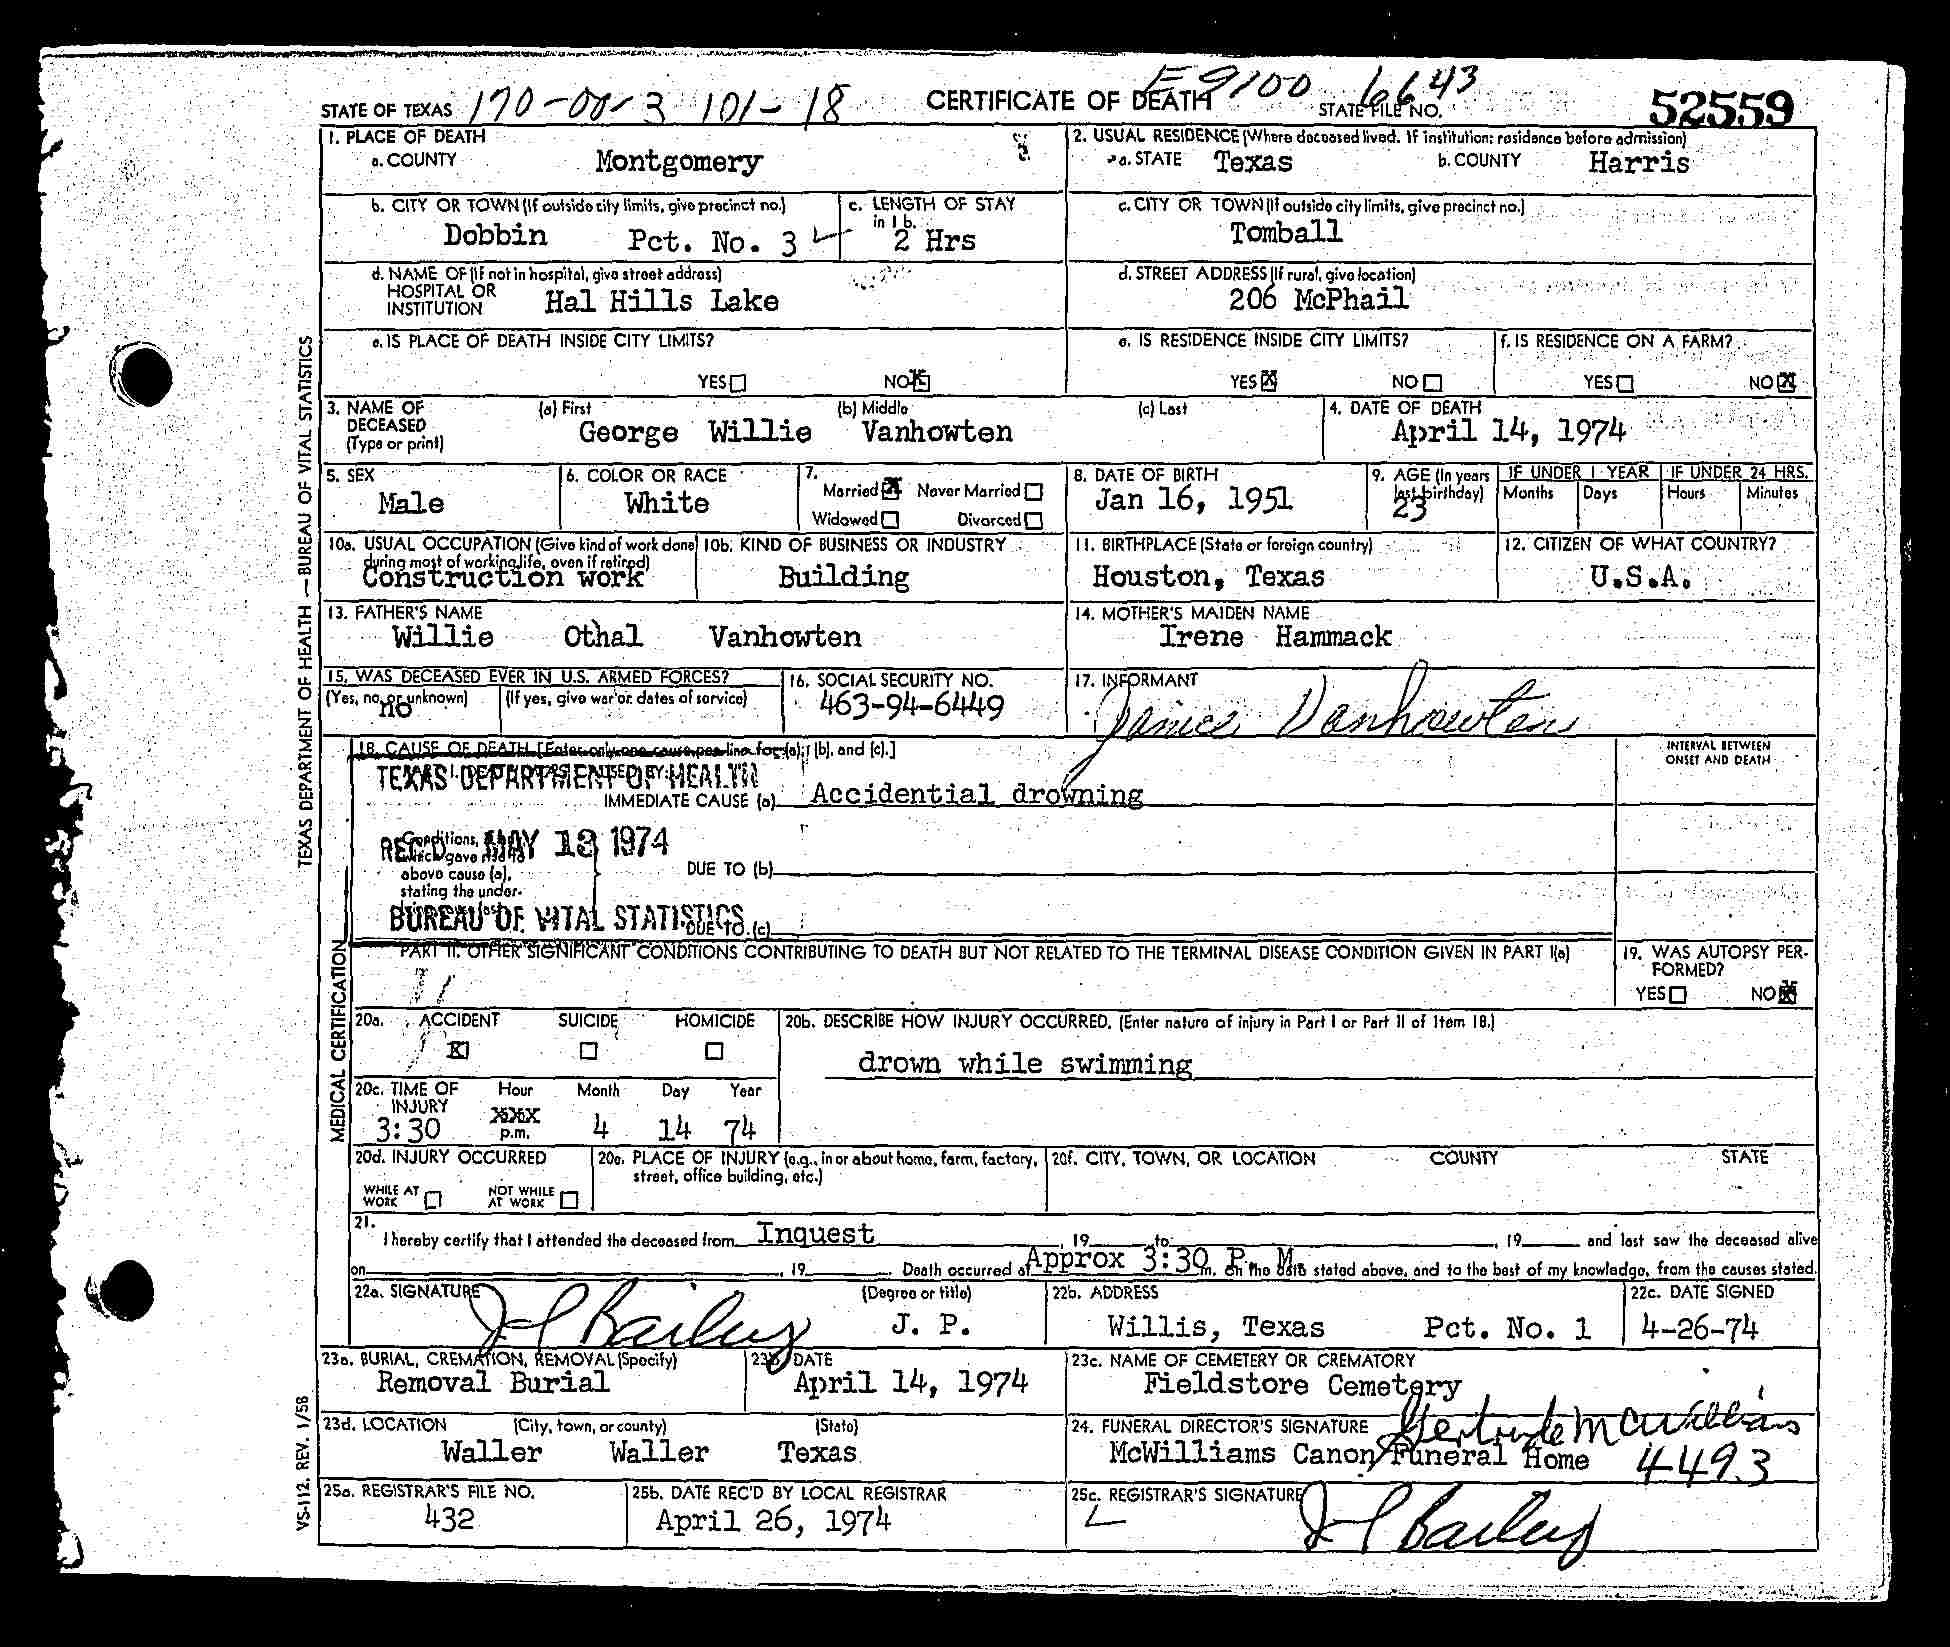 STATE OF TEXAS 170-00-3 101-18 CERTIFICATE OF DEATH E9100 6643 STATE FILE NO. 52559
1. PLACE OF DEATH
a. COUNTY Montgomery
2. USUAL RESIDENCE (Where deceased lived. If institution: residence before admission)
a. STATE Texas b. COUNTY Harris
b. CITY OR TOWN (If outside city limits, give precinct no.) Dobbin Pct. No. 3
c. LENGTH OF STAY in 1 b. 2 Hrs
c. CITY OR TOWN (If outside city limits, give precinct no.) Tomball
d. NAME OF (If not in hospital, give street address) HOSPITAL OR INSTITUTION Hal Hills Lake
d. STREET ADDRESS (If rural, give location) 206 McPhail
e. IS PLACE OF DEATH INSIDE CITY LIMITS?
YES NO X
e. IS RESIDENCE INSIDE CITY LIMITS?
YES X NO
f. IS RESIDENCE ON A FARM?
YES NO X
3. NAME OF DECEASED (Type or print)
(a) First (b) Middle (c) Last
George Willie Vanhowten
4. DATE OF DEATH
April 14, 1974
5. SEX
Male
6. COLOR OR RACE
White
7.
Married X Never Married
Widowed Divorced
8. DATE OF BIRTH
Jan 16, 1951
9. AGE (In years last birthday) 23
IF UNDER 1 YEAR Months Days
IF UNDER 24 HRS. Hours Minutes
10a. USUAL OCCUPATION (Give kind of work done during most of working life, even if retired)
Construction work
10b. KIND OF BUSINESS OR INDUSTRY
Building
11. BIRTHPLACE (State or foreign country)
Houston, Texas
12. CITIZEN OF WHAT COUNTRY?
U.S.A.
13. FATHER'S NAME
Willie Othal Vanhowten
14. MOTHER'S MAIDEN NAME
Irene Hammack
15. WAS DECEASED EVER IN U.S. ARMED FORCES?
(Yes, no, or unknown) no (If yes, give war or dates of service)
16. SOCIAL SECURITY NO.
463-94-6449
17. INFORMANT
Janice Vanhowten
18. CAUSE OF DEATH [Enter only one cause per line for (a), (b), and (c).]
INTERVAL BETWEEN ONSET AND DEATH
TEXAS DEPARTMENT OF HEALTH
IMMEDIATE CAUSE (a) Accidential drowning
REC'D MAY 13 1974
Conditions, which gave rise to above cause (a), stating the under-
DUE TO (b)
BUREAU OF VITAL STATISTICS
DUE TO (c)
PART II. OTHER SIGNIFICANT CONDITIONS CONTRIBUTING TO DEATH BUT NOT RELATED TO THE TERMINAL DISEASE CONDITION GIVEN IN PART I(a)
19. WAS AUTOPSY PERFORMED?
YES NO X
20a. ACCIDENT SUICIDE HOMICIDE
X
20b. DESCRIBE HOW INJURY OCCURRED. (Enter nature of injury in Part I or Part II of Item 18.)
drown while swimming
20c. TIME OF INJURY Hour Month Day Year
3:30 XXX p.m. 4 14 74
20d. INJURY OCCURRED
WHILE AT WORK NOT WHILE AT WORK
20e. PLACE OF INJURY (e.g., in or about home, farm, factory, street, office building, etc.)
20f. CITY, TOWN, OR LOCATION COUNTY STATE
21.
I hereby certify that I attended the deceased from Inquest, 19 to , 19 and last saw the deceased alive
on , 19 . Death occurred at Approx 3:30 P. M. m. on the date stated above, and to the best of my knowledge, from the causes stated.
22a. SIGNATURE (Degree or title)
Bailey J. P.
22b. ADDRESS
Willis, Texas Pct. No. 1
22c. DATE SIGNED
4-26-74
23a. BURIAL, CREMATION, REMOVAL (Specify)
Removal Burial
23b. DATE
April 14, 1974
23c. NAME OF CEMETERY OR CREMATORY
Fieldstore Cemetery
23d. LOCATION (City, town, or county) (State)
Waller Waller Texas
24. FUNERAL DIRECTOR'S SIGNATURE Gertrude McWilliams
McWilliams Canon Funeral Home 4493
25a. REGISTRAR'S FILE NO.
432
25b. DATE REC'D BY LOCAL REGISTRAR
April 26, 1974
25c. REGISTRAR'S SIGNATURE
Bailey
TEXAS DEPARTMENT OF HEALTH — BUREAU OF VITAL STATISTICS
MEDICAL CERTIFICATION
VS-112. REV. 1/58